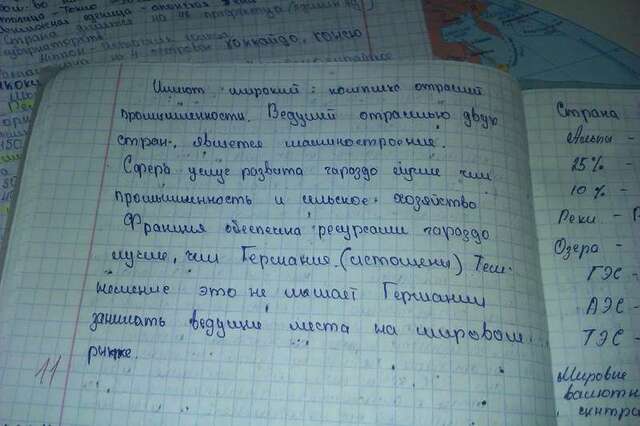 столица - Токио
Страна
на 47 префектур
Хоккайдо, Хонсю
Имеют широкий комплекс отраслей
промышленности. Ведущей отраслью двух
стран, является машиностроение.
Сфера услуг развита гараздо лучше чем
промышленность и сельское хозяйство
Франция обеспечена ресурсами гараздо
лучше, чем Германия. (истощены) Тем
неменение это не мешает Германии
занимать ведущие места на мировом
рынке.
11
Страна
Альпы -
25% -
10% -
Реки -
Озера -
ГЭС -
АЭС -
ТЭС -
Мировые
валютн
центра